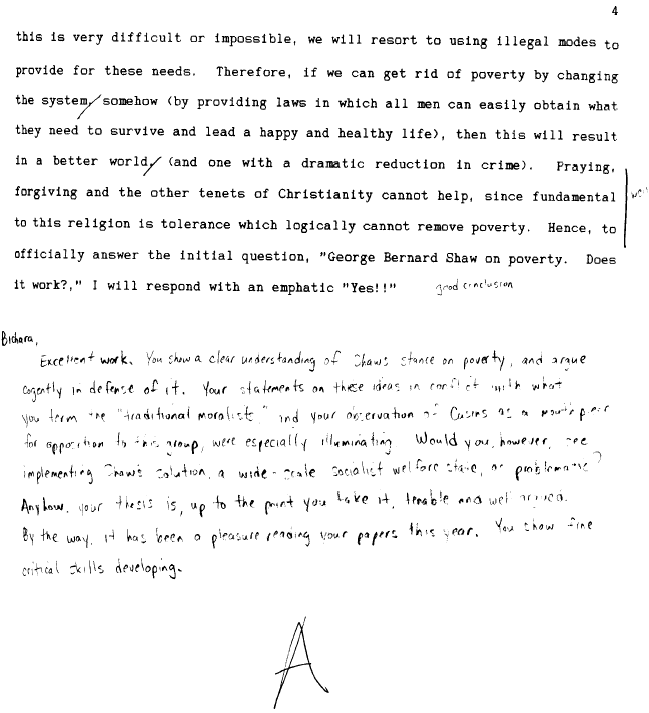 4
this is very difficult or impossible, we will resort to using illegal modes to
provide for these needs. Therefore, if we can get rid of poverty by changing
the system/somehow (by providing laws in which all men can easily obtain what
they need to survive and lead a happy and healthy life), then this will result
in a better world/ (and one with a dramatic reduction in crime). Praying,
forgiving and the other tenets of Christianity cannot help, since fundamental
to this religion is tolerance which logically cannot remove poverty. Hence, to
officially answer the initial question, "George Bernard Shaw on poverty. Does
it work?," I will respond with an emphatic "Yes!!" good conclusion
Bichara,
Excellent work. You show a clear understanding of Shaw's stance on poverty, and argue
cogently in defense of it. Your statements on these ideas in conflict with what
you term the "traditional moralist," and your observation of Cusins as a mouthpiece
for opposition to this group, were especially illuminating. Would you, however, see
implementing Shaw's solution, a wide-scale socialist welfare state, as problematic?
Anyhow, your thesis is, up to the point you take it, tenable and well argued.
By the way, it has been a pleasure reading your papers this year. You show fine
critical skills developing.
A